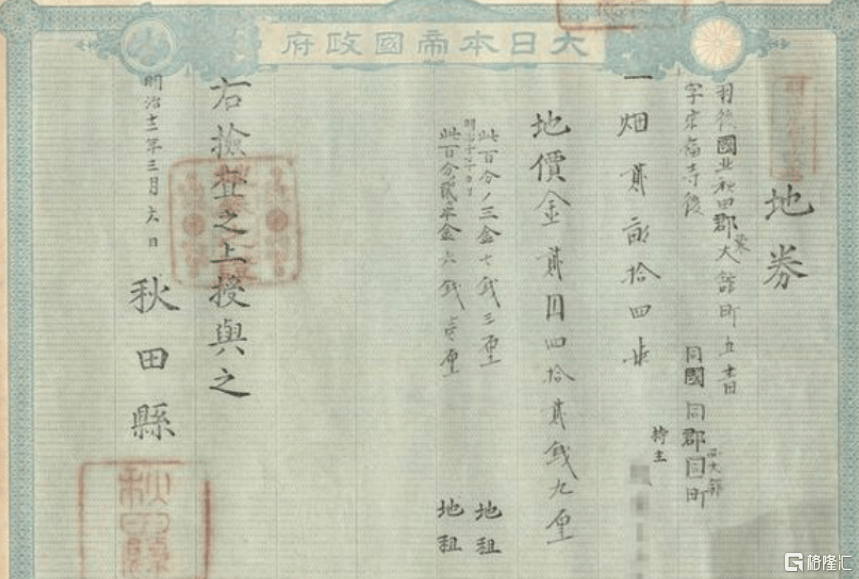 大日本帝國政府
地券
羽後國北秋田郡大館町
字宗福寺後
一畑貳畝拾四歩
同國同郡同町
持主
地價金貳円四拾貳銭九厘
此百分ノ三金七銭三厘 地租
明治十年ヨリ
此百分ノ貳半金六銭壱厘 地租
右撿査之上授與之
明治十二年三月六日
秋田縣
秋田縣
格隆汇